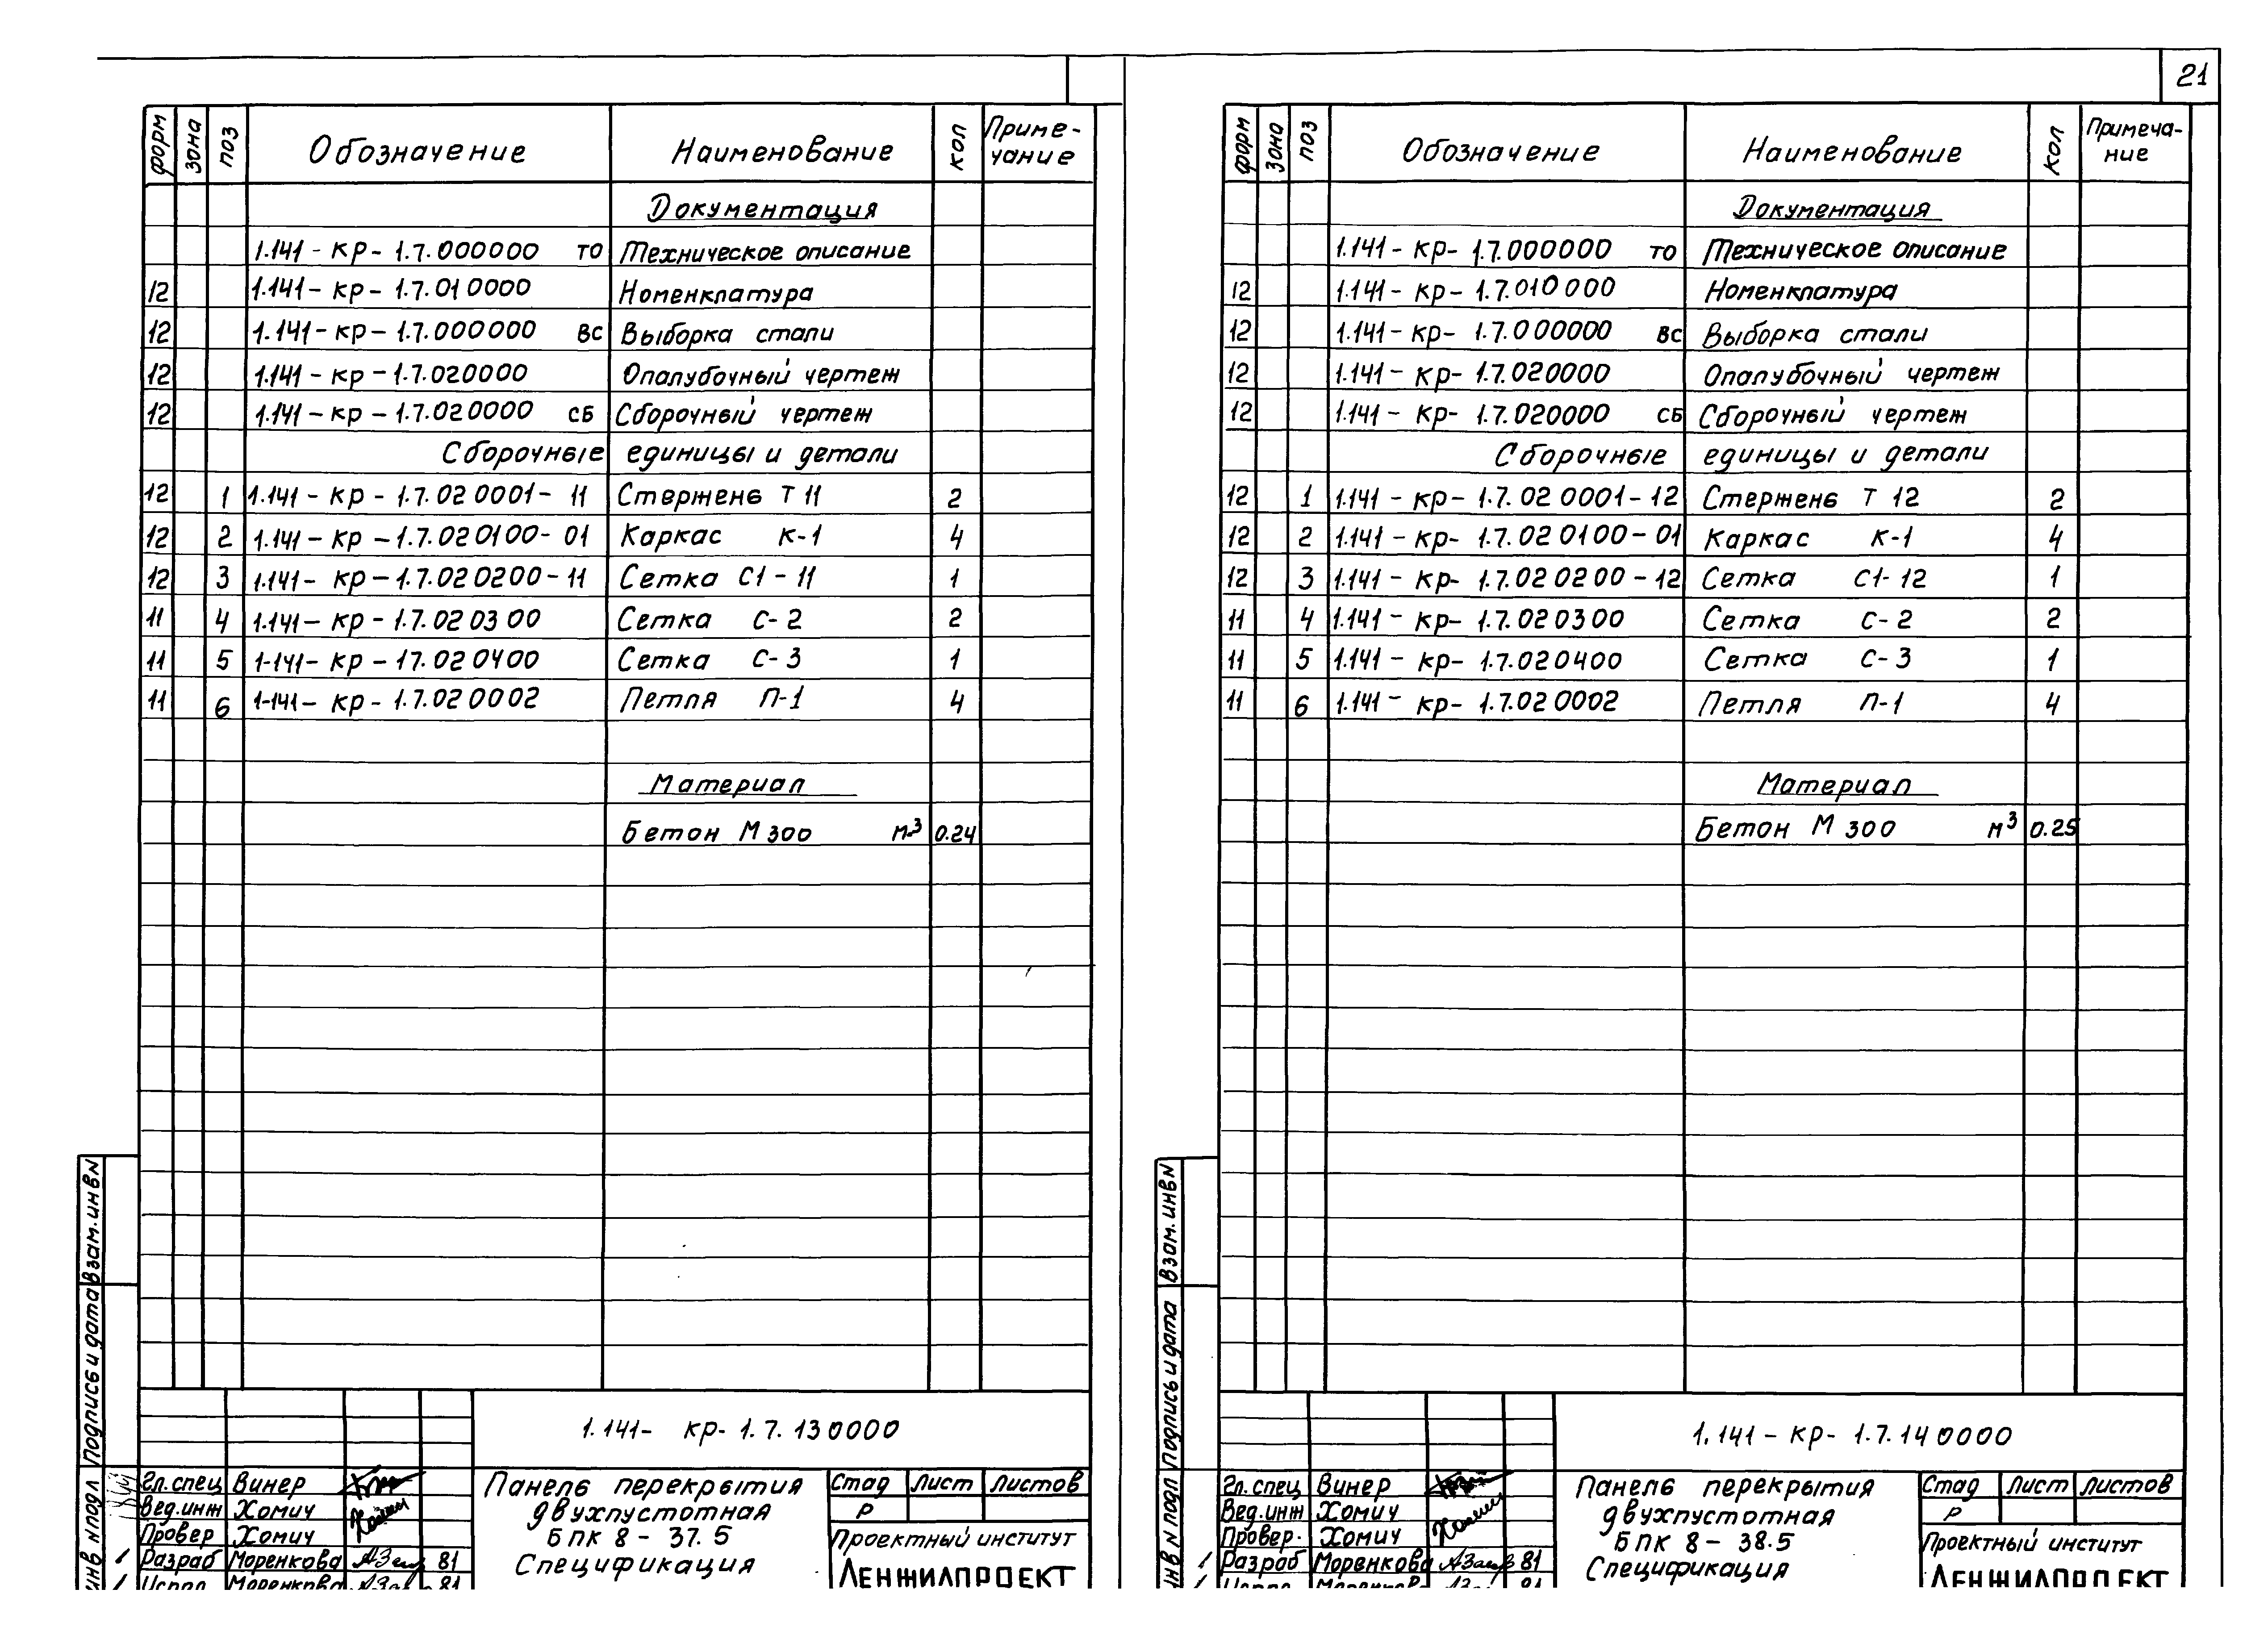 21
форм зона поз Обозначение Наименование кол Приме-
чание
Документация
1.141 - кр - 1.7.000000 ТО Техническое описание
12 1.141 - кр - 1.7.010000 Номенклатура
12 1.141 - кр - 1.7.000000 ВС Выборка стали
12 1.141 - кр - 1.7.020000 Опалубочный чертеж
12 1.141 - кр - 1.7.020000 СБ Сборочный чертеж
Сборочные единицы и детали
12 1 1.141 - кр - 1.7.020001 - 11 Стержень Т 11 2
12 2 1.141 - кр - 1.7.020100 - 01 Каркас К-1 4
12 3 1.141 - кр - 1.7.020200 - 11 Сетка С1 - 11 1
11 4 1.141 - кр - 1.7.020300 Сетка С-2 2
11 5 1-141 - кр - 17.020400 Сетка С-3 1
11 6 1-141 - кр - 1.7.020002 Петля П-1 4
Материал
Бетон М 300 м³ 0.24
Взам. инв N
Подпись и дата
инв N подл
1.141 - кр - 1.7.130000
Гл. спец Винер
Вед. инж Хомич
Провер Хомич
Разраб Моренкова 81
Испол Моренкова 81
Панель перекрытия
двухпустотная
БПК 8 - 37.5
Спецификация
Стад Лист Листов
Р
Проектный институт
ЛЕНЖИЛПРОЕКТ
форм зона поз Обозначение Наименование кол Примеча-
ние
Документация
1.141 - кр - 1.7.000000 ТО Техническое описание
12 1.141 - кр - 1.7.010000 Номенклатура
12 1.141 - кр - 1.7.000000 ВС Выборка стали
12 1.141 - кр - 1.7.020000 Опалубочный чертеж
12 1.141 - кр - 1.7.020000 СБ Сборочный чертеж
Сборочные единицы и детали
12 1 1.141 - кр - 1.7.020001 - 12 Стержень Т 12 2
12 2 1.141 - кр - 1.7.020100 - 01 Каркас К-1 4
12 3 1.141 - кр - 1.7.020200 - 12 Сетка С1 - 12 1
11 4 1.141 - кр - 1.7.020300 Сетка С-2 2
11 5 1.141 - кр - 1.7.020400 Сетка С-3 1
11 6 1.141 - кр - 1.7.020002 Петля П-1 4
Материал
Бетон М 300 м³ 0.25
Взам. инв N
Подпись и дата
инв N подл
1.141 - кр - 1.7.140000
Гл. спец Винер
Вед. инж Хомич
Провер. Хомич
Разраб Моренкова 81
Панель перекрытия
двухпустотная
БПК 8 - 38.5
Спецификация
Стад Лист Листов
Р
Проектный институт
ЛЕНЖИЛПРОЕКТ